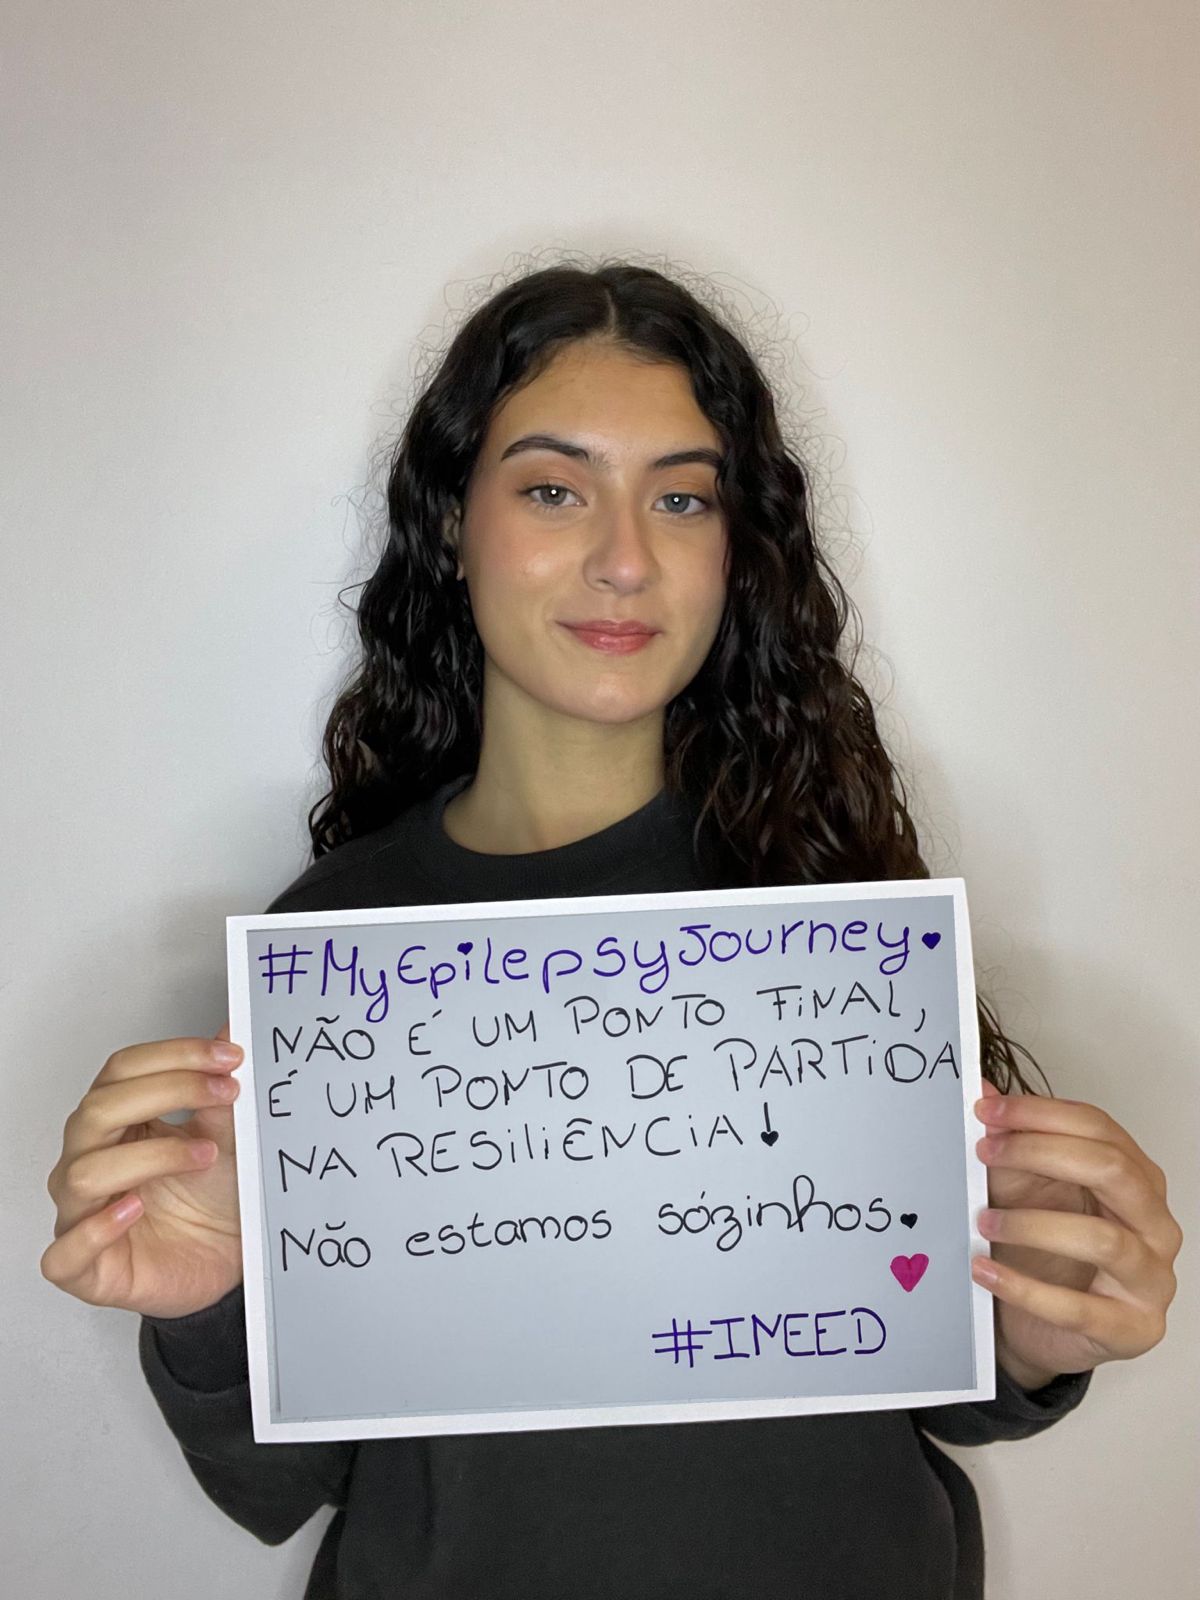 #MyEpilepsyJourney.
NÃO É UM PONTO FINAL,
É UM PONTO DE PARTIDA
NA RESILIÊNCIA!
Não estamos sózinhos.
#INEED